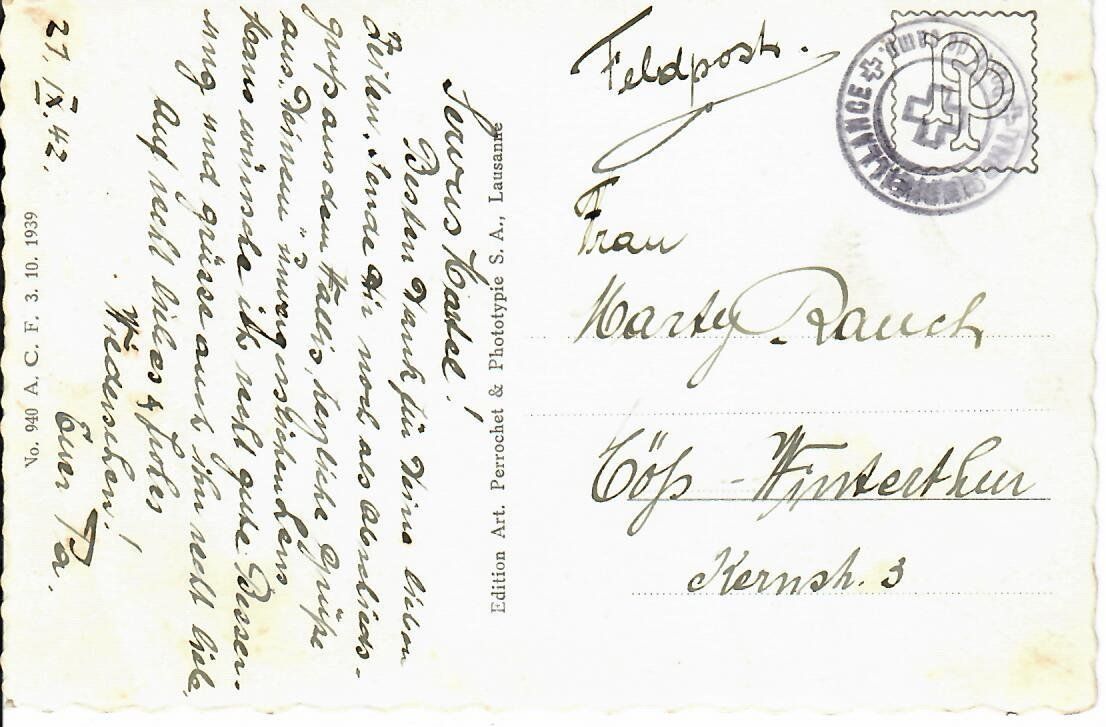 Feldpost.
PP
SURVEILLANCE
Frau
Marty Rauch
Töß - Winterthur
Kernstr. 3
Edition Art. Perrochet & Phototypie S. A., Lausanne
Servus!
Besten Dank für Deine lieben
Zeilen. Sende Dir noch als Abschieds-
gruß aus dem Wallis, herzliche Grüße
aus Deinem "unvergesslichen Lens
Hans wünsche ich recht gute Besser-
ung und grüsse auch ihn recht lieb,
Auf recht liebes & frohes
Wiedersehen!
Euer Pa.
21. IX. 42.
No. 940 A. C. F. 3. 10. 1939